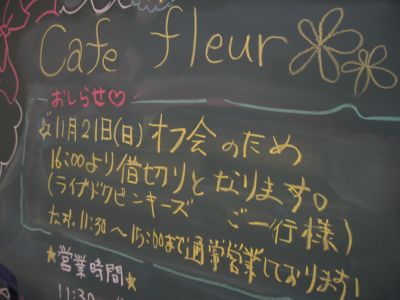 Cafe fleur
おしらせ♡
☆11月21日(日) オフ会のため
16:00より借切りとなります。
(ライブドクピンキーズ ご一行様)
なお、11:30〜15:00まで通常営業しております!
★営業時間★
11:30〜